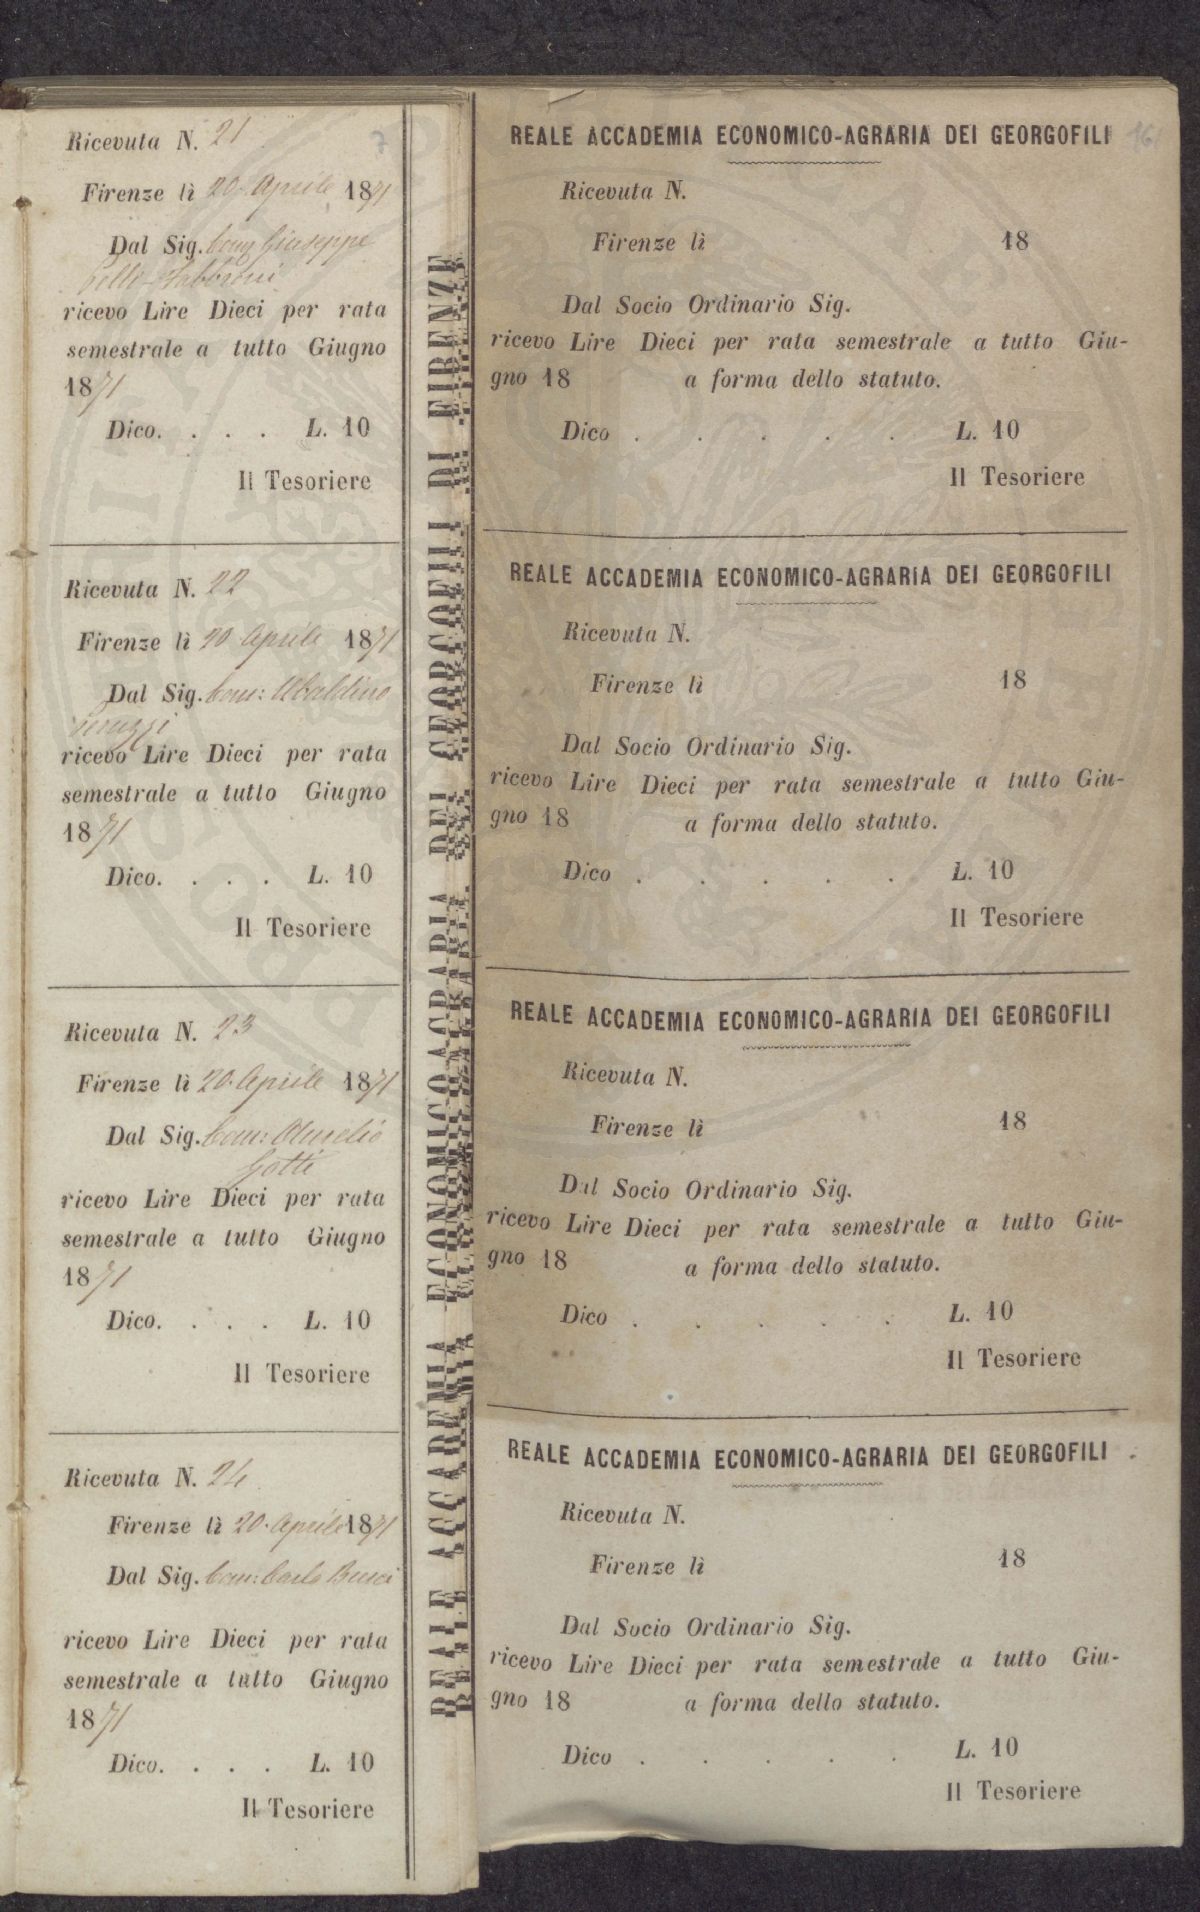 Ricevuta N. 21
7
Firenze lì 20 Aprile 1871
Dal Sig. Giuseppe
Fabbroni
ricevo Lire Dieci per rata
semestrale a tutto Giugno
1871
Dico. . . . L. 10
Il Tesoriere
Ricevuta N. 22
Firenze lì 20 Aprile 1871
Dal Sig. Com: Ubaldino
Peruzzi
ricevo Lire Dieci per rata
semestrale a tutto Giugno
1871
Dico. . . . L. 10
Il Tesoriere
Ricevuta N. 23
Firenze lì 20. Aprile 1871
Dal Sig. Com: Aurelio
Gotti
ricevo Lire Dieci per rata
semestrale a tutto Giugno
1871
Dico. . . . L. 10
Il Tesoriere
Ricevuta N. 24
Firenze lì 20. Aprile 1871
Dal Sig. Carlo
ricevo Lire Dieci per rata
semestrale a tutto Giugno
1871
Dico. . . . L. 10
Il Tesoriere
REALE ACCADEMIA ECONOMICO-AGRARIA DEI GEORGOFILI DI FIRENZE
REALE ACCADEMIA ECONOMICO-AGRARIA DEI GEORGOFILI
16
Ricevuta N.
Firenze lì 18
Dal Socio Ordinario Sig.
ricevo Lire Dieci per rata semestrale a tutto Giu-
gno 18 a forma dello statuto.
Dico . . . . . L. 10
Il Tesoriere
REALE ACCADEMIA ECONOMICO-AGRARIA DEI GEORGOFILI
Ricevuta N.
Firenze lì 18
Dal Socio Ordinario Sig.
ricevo Lire Dieci per rata semestrale a tutto Giu-
gno 18 a forma dello statuto.
Dico . . . . . L. 10
Il Tesoriere
REALE ACCADEMIA ECONOMICO-AGRARIA DEI GEORGOFILI
Ricevuta N.
Firenze lì 18
Dal Socio Ordinario Sig.
ricevo Lire Dieci per rata semestrale a tutto Giu-
gno 18 a forma dello statuto.
Dico . . . . . L. 10
Il Tesoriere
REALE ACCADEMIA ECONOMICO-AGRARIA DEI GEORGOFILI
Ricevuta N.
Firenze lì 18
Dal Socio Ordinario Sig.
ricevo Lire Dieci per rata semestrale a tutto Giu-
gno 18 a forma dello statuto.
Dico . . . . . L. 10
Il Tesoriere